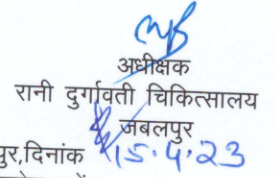 अधीक्षक
रानी दुर्गावती चिकित्सालय
जबलपुर
पुर,दिनांक 15.4.23